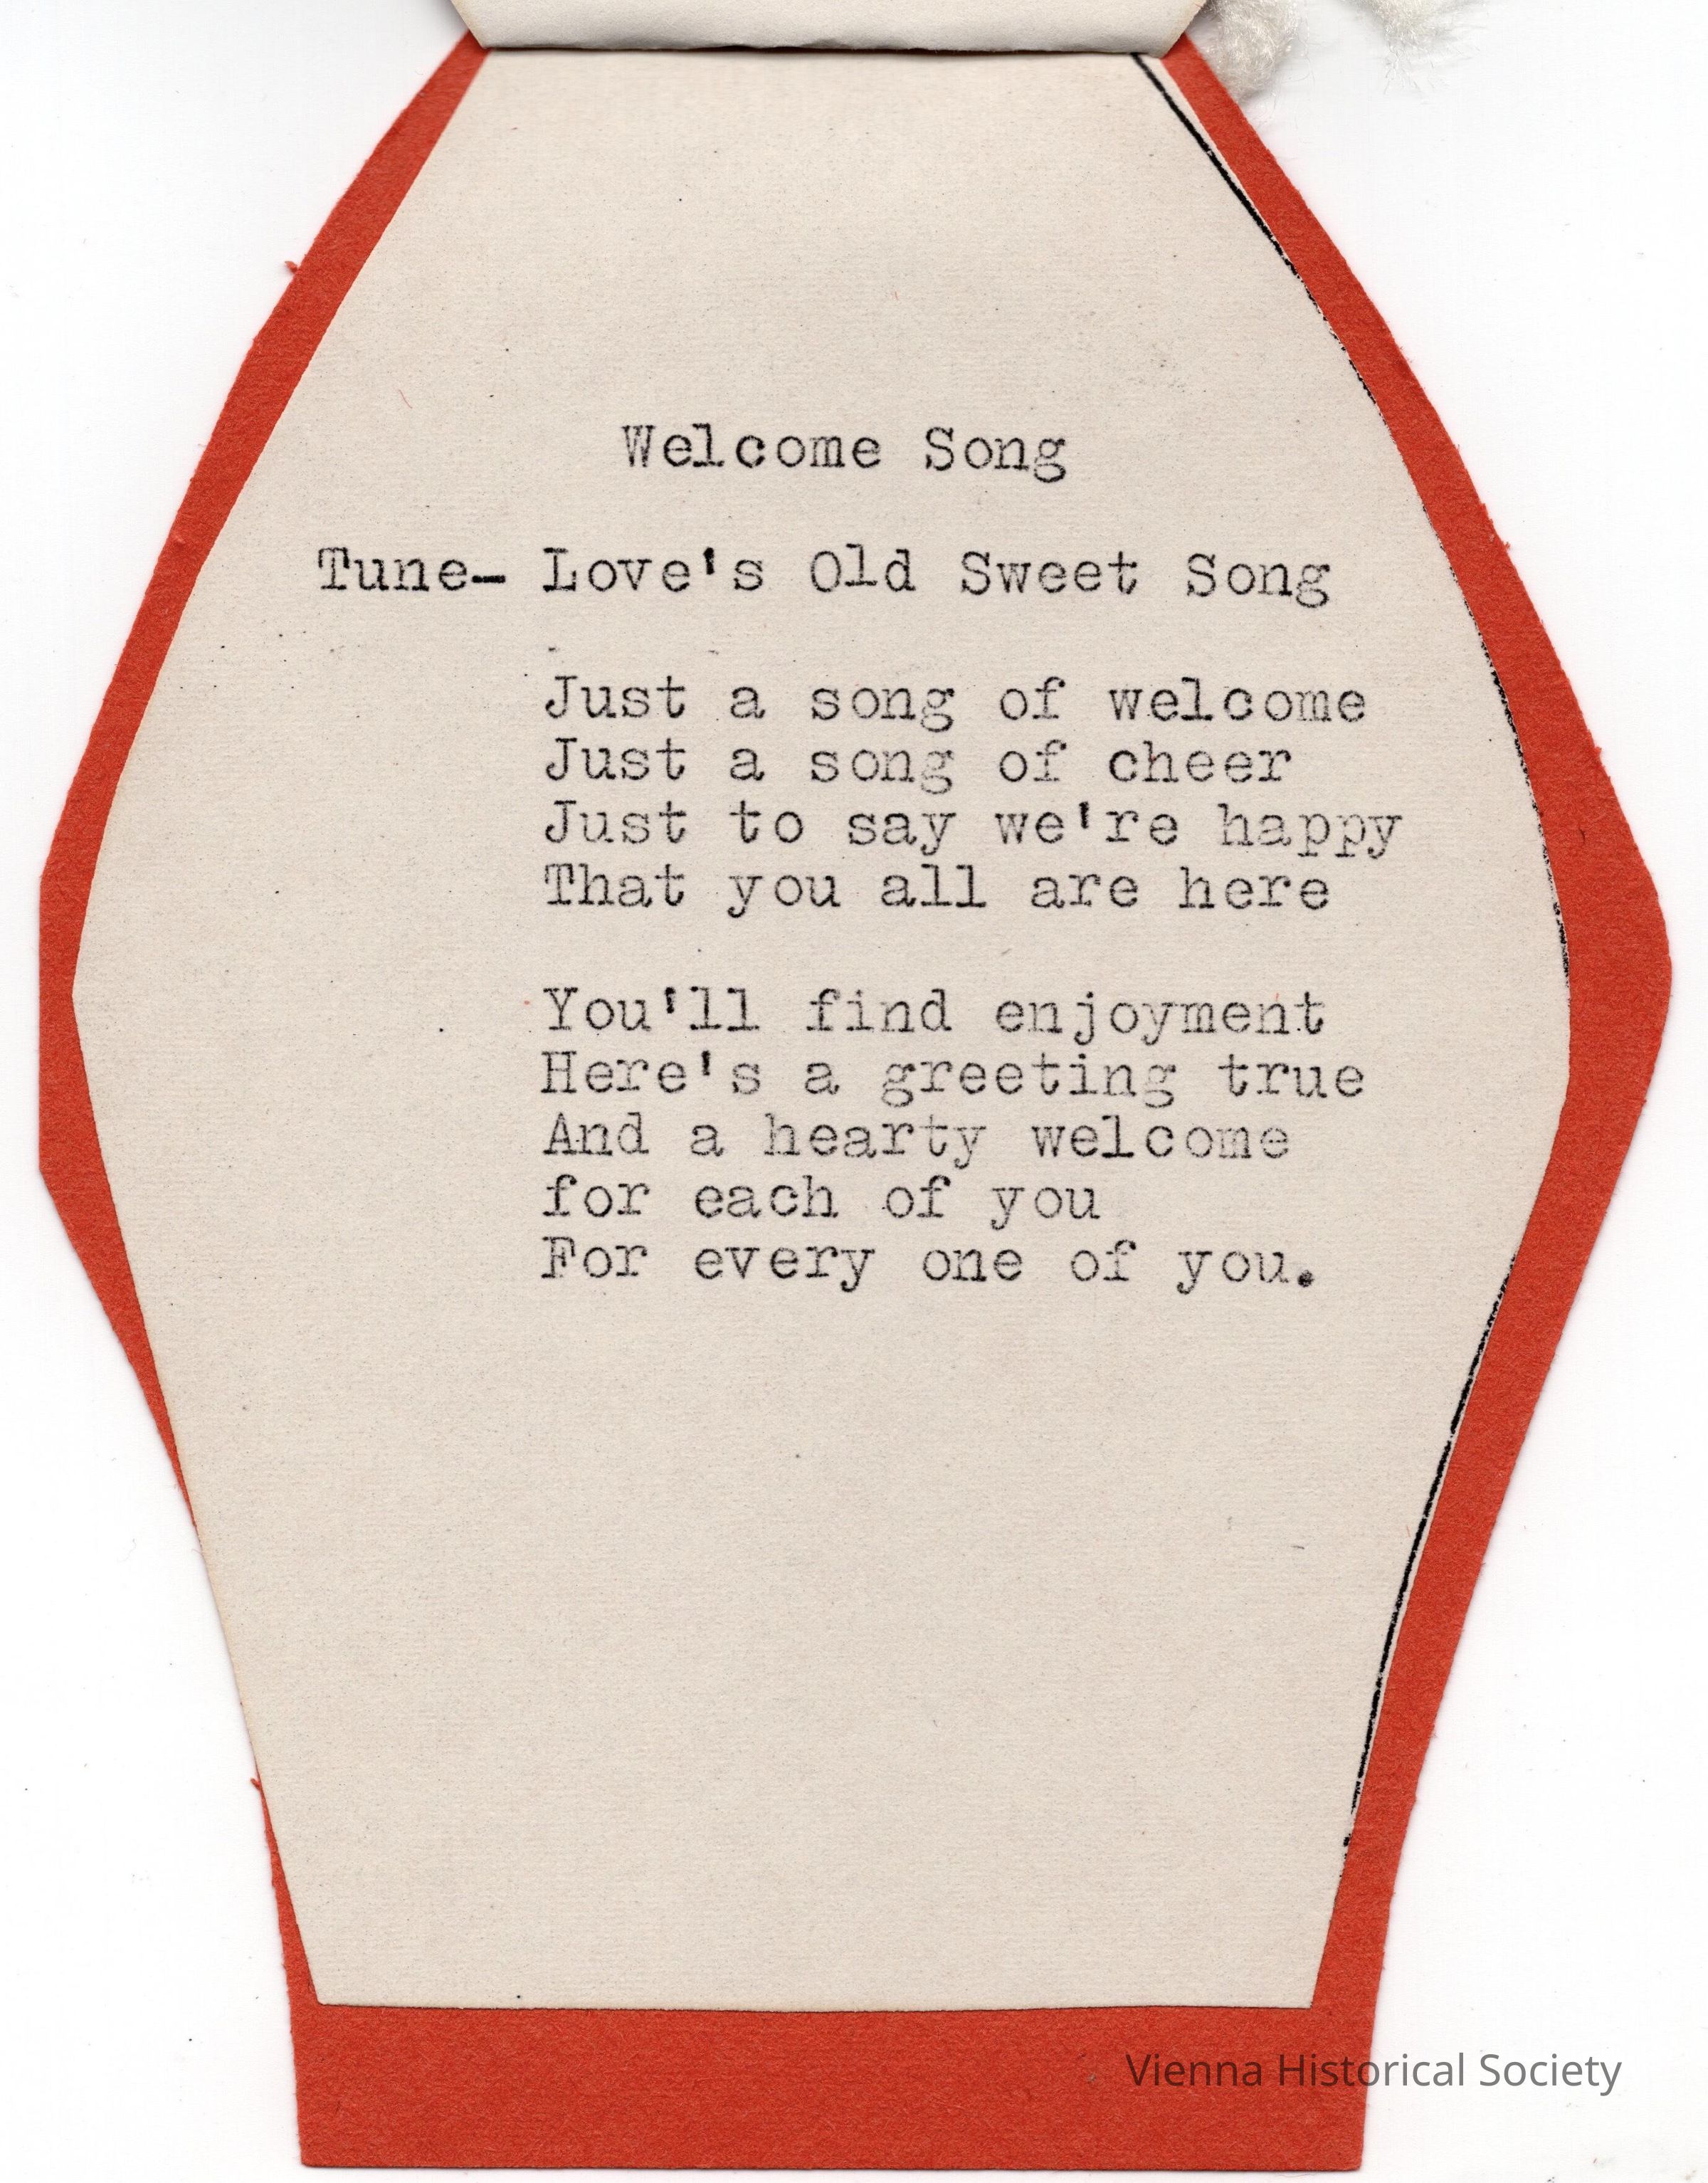 Welcome Song
Tune- Love's Old Sweet Song
Just a song of welcome
Just a song of cheer
Just to say we're happy
That you all are here
You'll find enjoyment
Here's a greeting true
And a hearty welcome
for each of you
For every one of you.
Vienna Historical Society